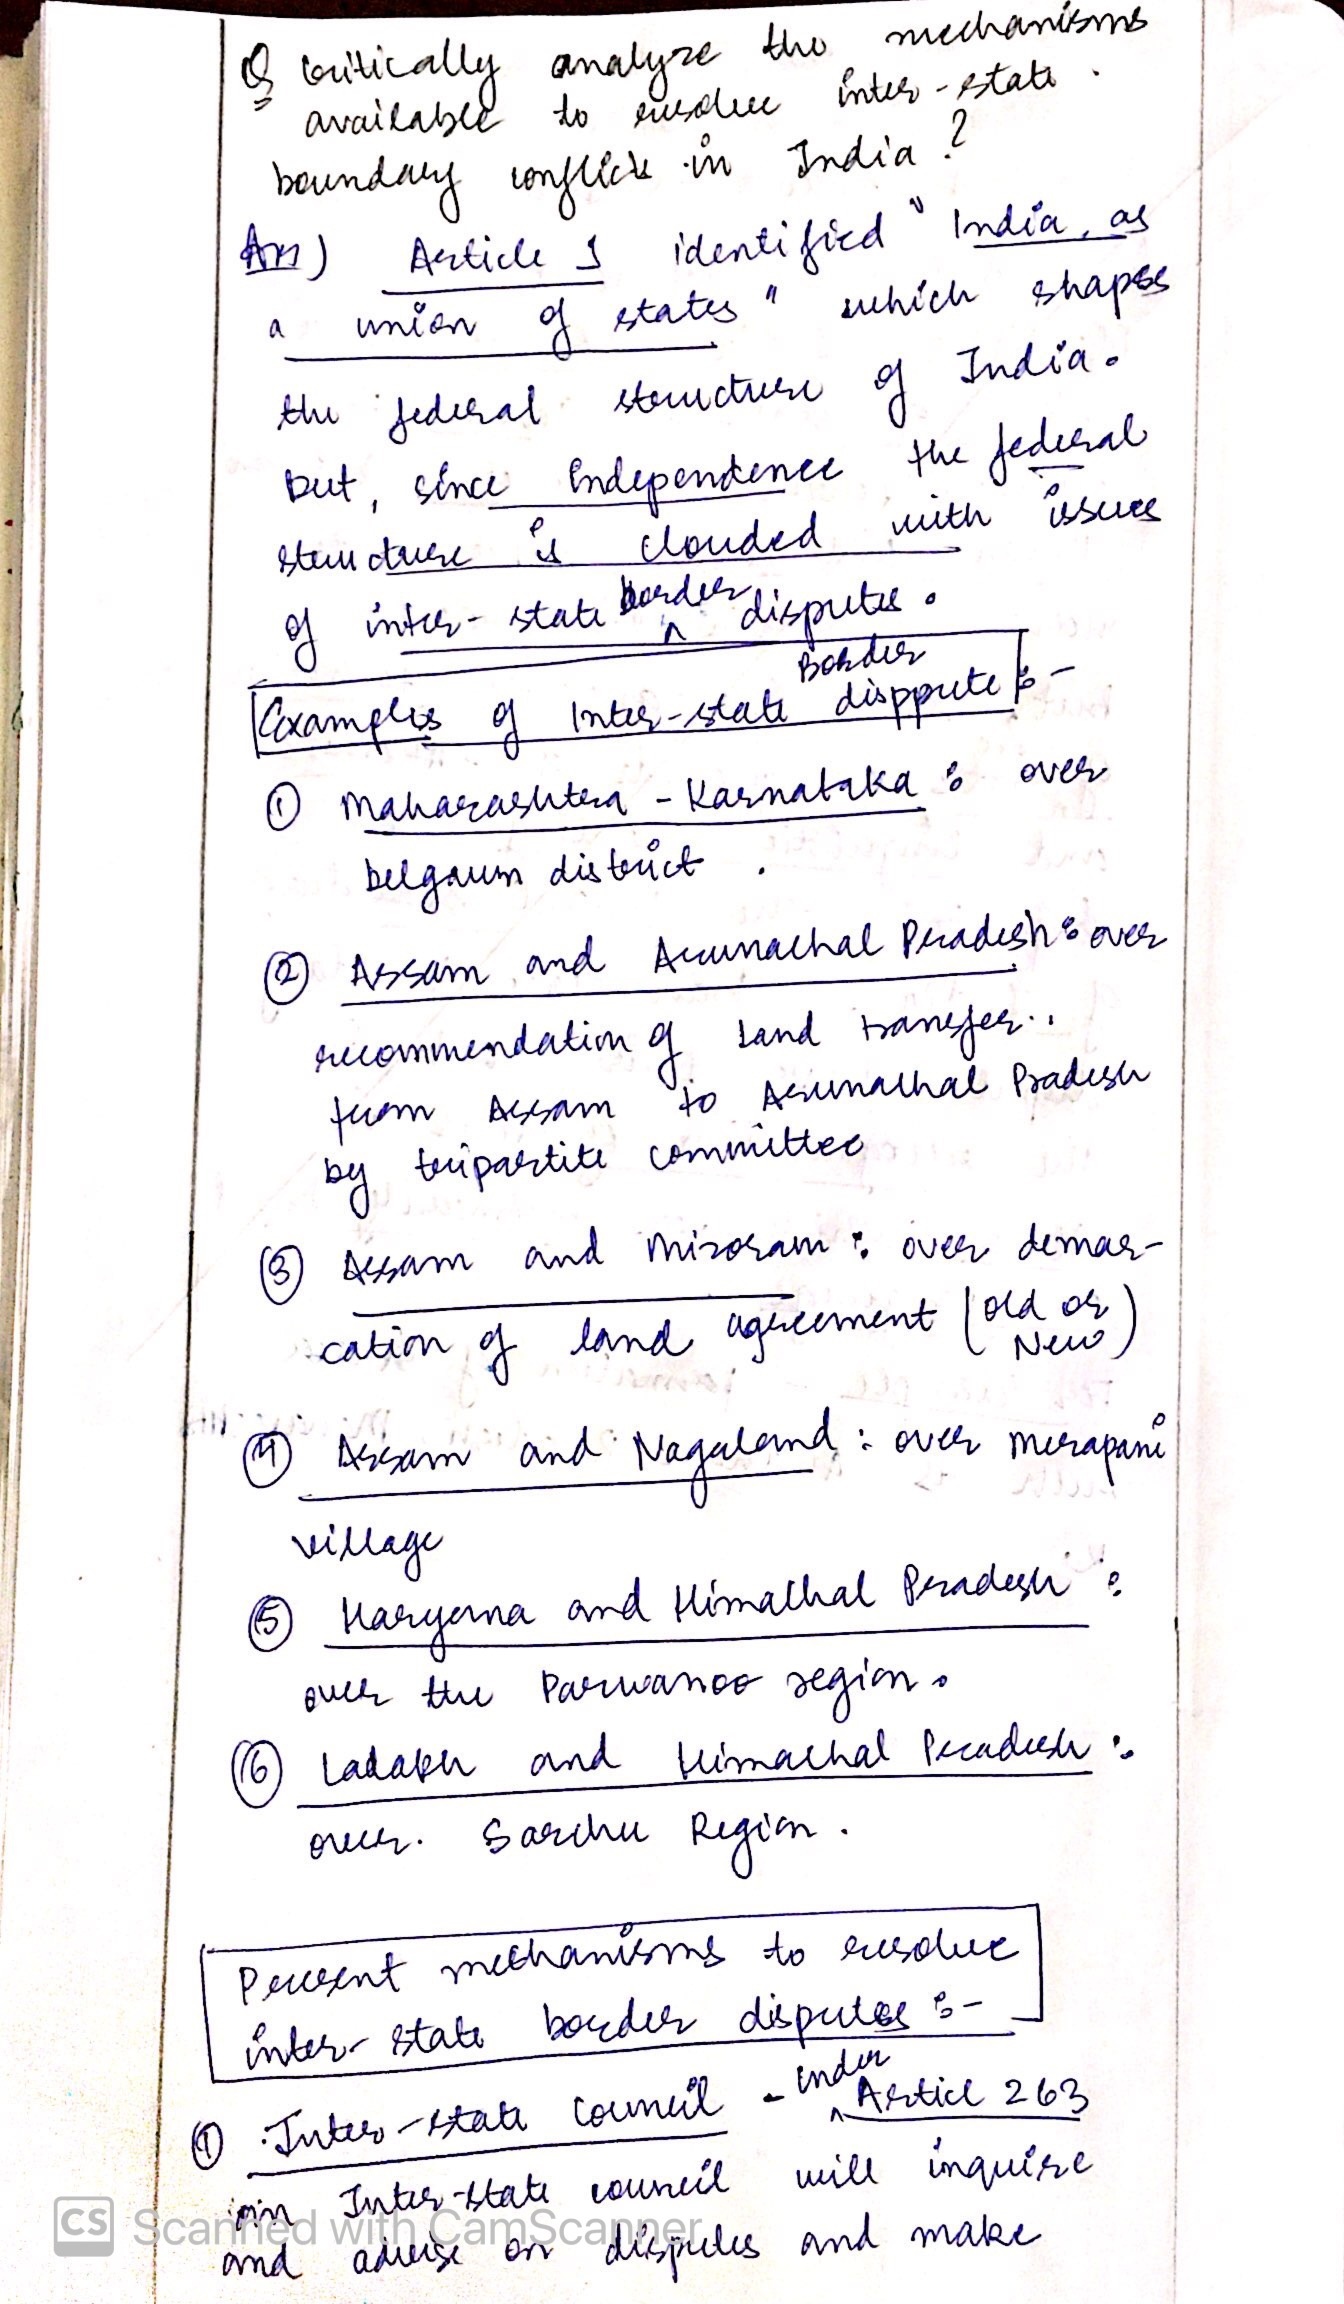 Q Critically analyze the mechanisms
available to resolve inter-state
boundary conflicts in India?
Ans) Article 1 identified "India, as
a union of states" which shapes
the federal structure of India.
But, since Independence the federal
structure is clouded with issues
of inter-state border disputes.
Examples of Inter-state Border disppute :-
① Maharashtra - Karnataka : over
belgaum district.
② Assam and Arunachal Pradesh : over
recommendation of land transfer
from Assam to Arunachal Pradesh
by tripartite committee
③ Assam and Mizoram : over demar-
cation of land agreement (old or
New)
④ Assam and Nagaland : over merapani
village
⑤ Haryana and Himachal Pradesh :
over the Parwanoo region.
⑥ Ladakh and Himachal Pradesh :
over. Sarchu Region.
Present mechanisms to resolve
inter-state border disputes :-
① Inter-state Council - under Article 263
an Inter-state council will inquire
and advise on disputes and make
CS Scanned with CamScanner